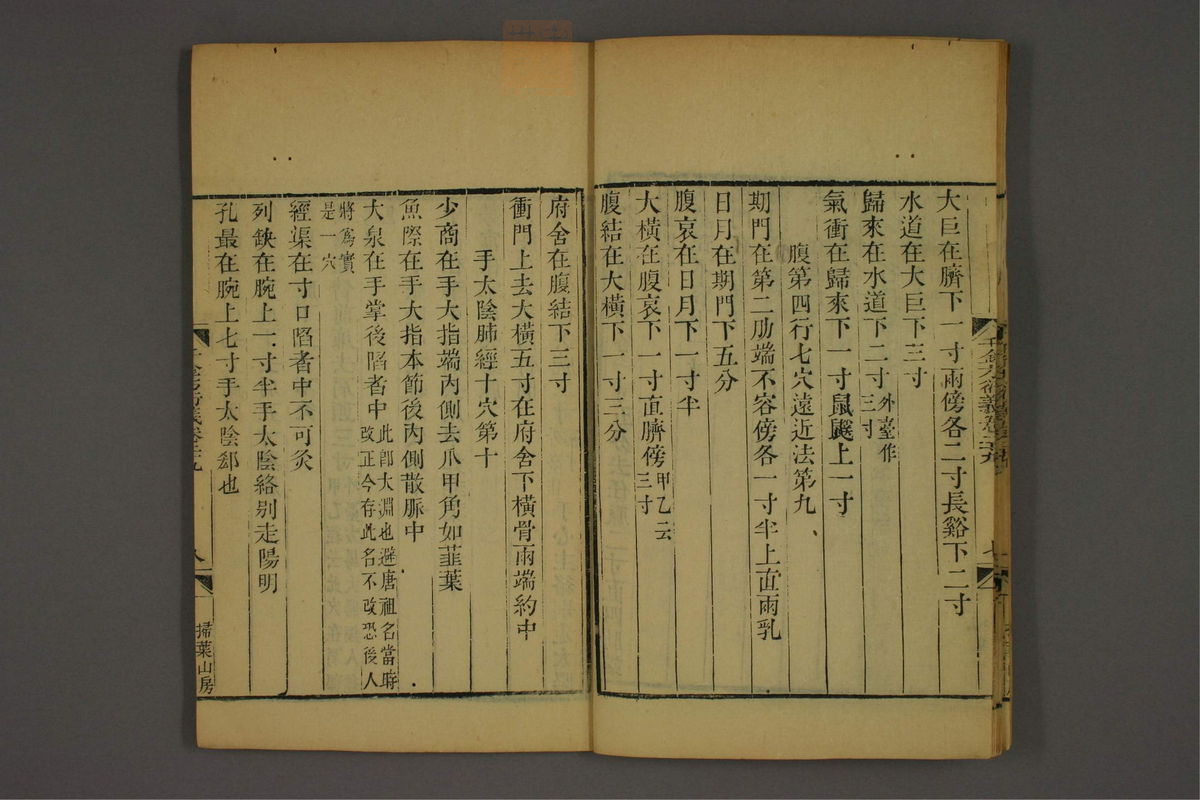 大巨在臍下一寸兩傍各二寸長谿下二寸
水道在大巨下三寸
歸來在水道下二寸外臺作三寸
氣衝在歸來下一寸鼠鼷上一寸
腹第四行七穴遠近法第九
期門在第二肋端不容傍各一寸半上直兩乳
日月在期門下五分
腹哀在日月下一寸半
大橫在腹哀下一寸直臍傍甲乙云三寸
腹結在大橫下一寸三分
府舍在腹結下三寸
衝門上去大橫五寸在府舍下橫骨兩端約中
手太陰肺經十穴第十
少商在手大指端內側去爪甲角如韮葉
魚際在手大指本節後內側散脈中
大泉在手掌後陷者中此卽大淵也避唐祖名當時改正今存此名不改恐後人
將爲實是一穴
經渠在寸口陷者中不可灸
列缺在腕上一寸半手太陰絡别走陽明
孔最在腕上七寸手太陰郄也
八
掃葉山房